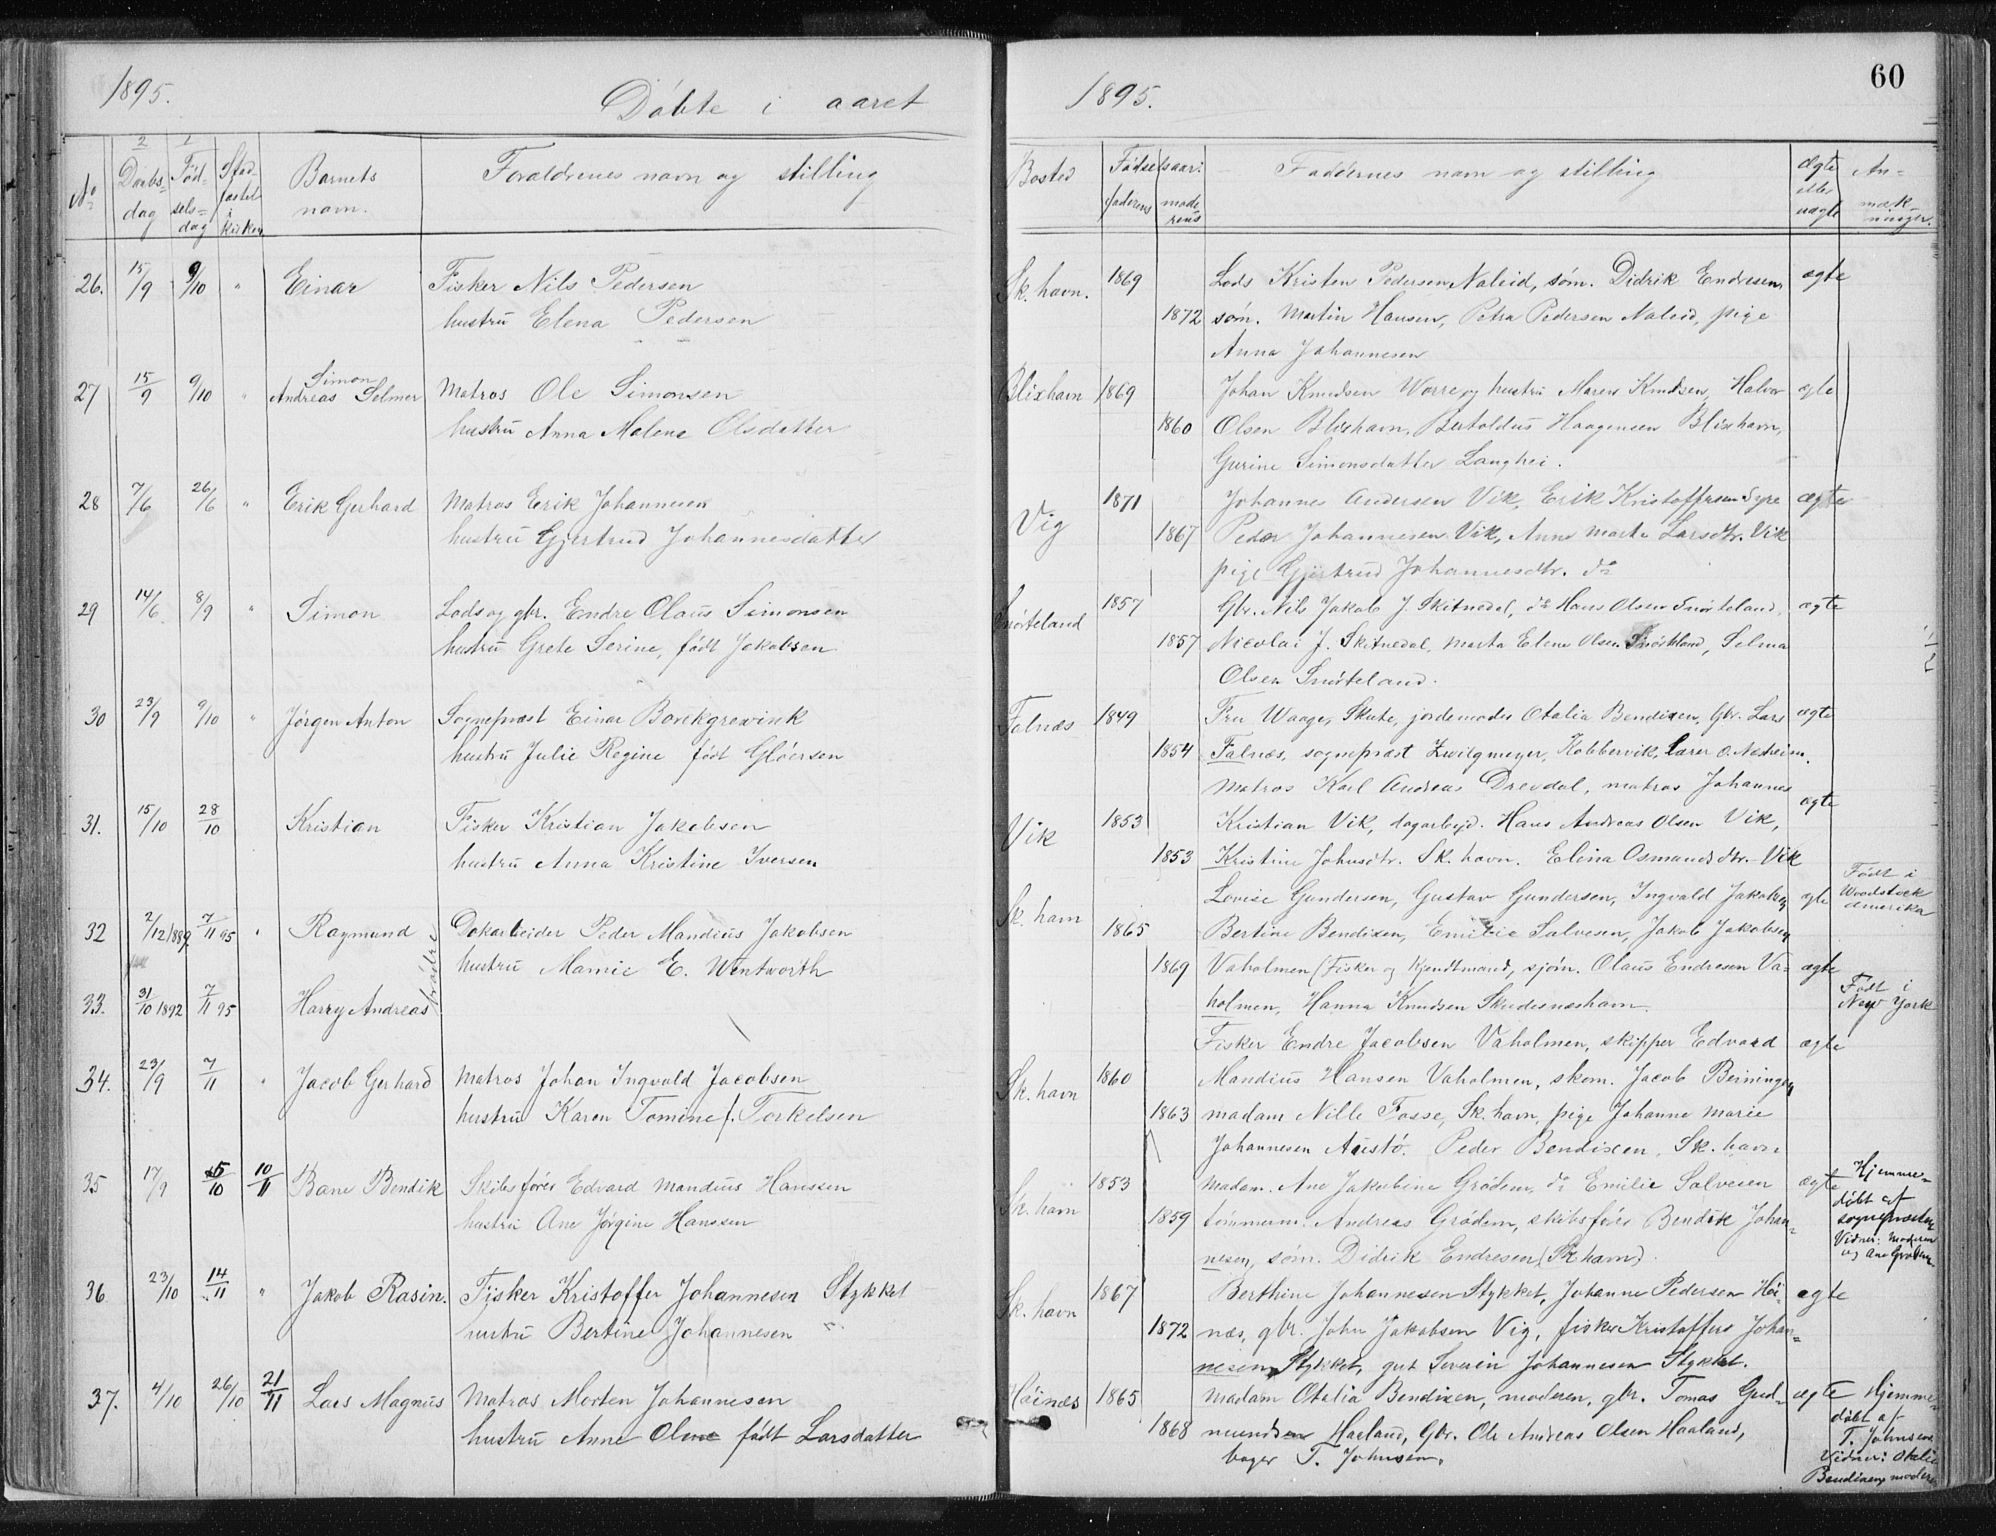 1895.
Döbte i aaret
1895.
60
No
2
Daabs-
dag
1
Fød-
sels-
dag
Stad-
fæstet
i
kirken
Barnets
navn.
Forældrenes navn og stilling
Bosted
Fødselsaar:
faderens
mode
rens
Faddernes navn og stilling
ægte
eller
uægte
An-
mærk
ninger.
26. 15/9 9/10 " Einar Fisker Nils Pedersen
hustru Elena Pedersen
Sk. havn. 1869 Lods Kristen Pedersen Naleid, søm. Didrik Endresen, ægte
1872 søm. Martin Hansen, Petra Pedersen Naleid, pige
Anna Johannesen
27 15/9 9/10 " Simon
Andreas Selmer Matros Ole Simonsen
hustru Anna Malene Olsdatter
Blixhavn 1869 Johan Knudsen Worre og hustru Maren Knudsen, Halvor ægte
1860 Olsen Blixhavn, Bertoldus Haagensen Blixhavn,
Gurine Simonsdatter Langhei.
28 7/6 26/6 " Erik Gerhard Matros Erik Johannesen
hustru Gjertrud Johannesdatter
Vig 1871 Johannes Andersen Vik, Erik Kristoffersen Syre ægte
1867 Peder Johannesen Vik, Anne Marta Larsdtr. Vik
pige Gjertrud Johannesdtr. do
29 14/6 8/9 " Simon Lods og gbr. Endre Olaus Simonsen
hustru Grete Serine, født Jakobsen
Snørteland 1857 Gbr. Nils Jakob J. Skitnedal, do Hans Olsen Snørteland, ægte
1857 Nicolai J. Skitnedal, Marta Elene Olsen Snørteland, Selma
Olsen Snørteland.
30 23/9 9/10 " Jörgen Anton Sognepræst Einar Borchgrevink
hustru Julie Regine født Glöersen
Falnæs 1849 Fru Waage, Skute, jordemoder Otalia Bendixen, Gbr. Lars ægte
1854 Falnæs, sognepræst Zwilgmeyer, Kobbervik, Lærer O. Næsheim.
31. 15/10 28/10 Kristian Fisker Kristian Jakobsen
hustru Anna Kristine Iversen
Vik 1853 Matros Karl Andreas Drevdal, matros Johannes ægte
Kristian Vik, dagarbejd. Hans Andreas Olsen Vik,
1853 Kristine Johnsdtr. Sk. havn. Elina Osmundsdtr. Vik
32 2/12 1889 7/11 95 " Raymund brødre Dokarbeider Peder Mandius Jakobsen
hustru Mamie E. Wentworth
Sk. havn 1865 Lovise Gundersen, Gustav Gundersen, Ingvald Jakobsen ægte Født i
Woodstock
Amerika
Bertine Bendixen, Emilie Salvesen, Jakob Jakobsen
33. 31/10 1892 7/11 95 Harry Andreas
1869 Vaholmen (Fisker og Kjendtmand, sjöm. Olaus Endresen Va- ægte Født i
New York
holmen, Hanna Knudsen Skudesneshavn.
34. 23/9 7/11 " Jacob Gerhard Matros Johan Ingvald Jacobsen
hustru Karen Tomine f. Torkelsen
Sk. havn 1860 Fisker Endre Jacobsen Vaholmen, skipper Edvard ægte
Mandius Hansen Vaholmen, skom. Jacob Beiningen
1863 madam Nille Fosse, Sk. havn, pige Johanne Marie
Johannesen Austö. Peder Bendixen, Sk. havn
35 17/9 5/10 10/11 Bane Bendik Skibsfører Edvard Mandius Hanssen
hustru Ane Jörgine Hanssen
Sk. havn 1853 Madam. Ane Jakobine Grödem, do Emilie Salvesen ægte Hjemme-
döbt af
sognepræsten
Vidner: Moderen
og Ane Grödem
1859 tömmerm. Andreas Grödem, skibsförer Bendik Johan-
nesen, söm. Didrik Endresen (Sk havn).
36. 23/10 14/11 " Jakob Rasin. Fisker Kristoffer Johannesen Stykket
hustru Bertine Johannesen "
Sk. havn 1867 Berthine Johannesen Stykket, Johanne Pedersen Höi- ægte
1872 næs, gbr. John Jakobsen Vig, fisker Kristoffer Johan-
nesen Stykket, gut Severin Johannesen Stykket.
37. 4/10 26/10 21/11 Lars Magnus Matros Morten Johannesen
hustru Anne Oline født Larsdatter
Höinæs 1865 Madam Otalia Bendixen, moderen, gbr. Tomas Gud- ægte Hjemme-
döbt af
T. Johnsen
Vidner: Otalia
Bendixen, moderen
1868 mundsen Haaland, Gbr. Ole Andreas Olsen Haaland,
bager T. Johnsen.